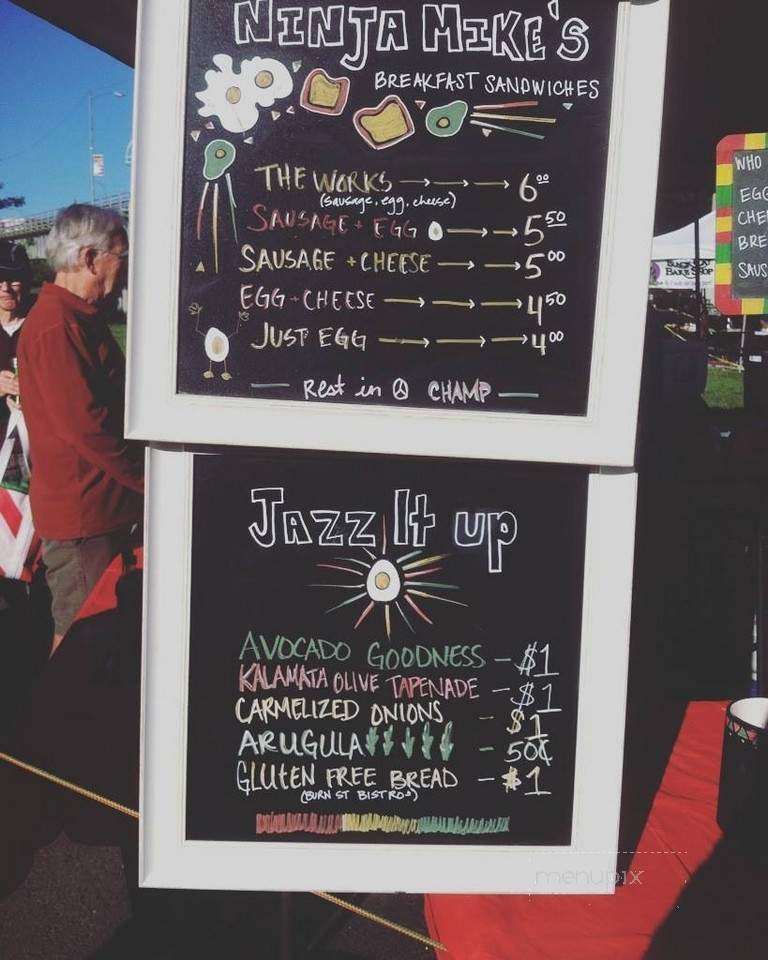 NINJA MIKE'S
BREAKFAST SANDWICHES
THE WORKS 6.00
(sausage, egg, cheese)
SAUSAGE + EGG 5.50
SAUSAGE + CHEESE 5.00
EGG + CHEESE 4.50
JUST EGG 4.00
Rest in ☮ CHAMP
Jazz It up
AVOCADO GOODNESS - $1
KALAMATA OLIVE TAPENADE - $1
CARMELIZED ONIONS - $1
ARUGULA - 50¢
GLUTEN FREE BREAD - $1
(BURN ST BISTRO)
WHO
EGG
CHE
BRE
SAUS
menupix